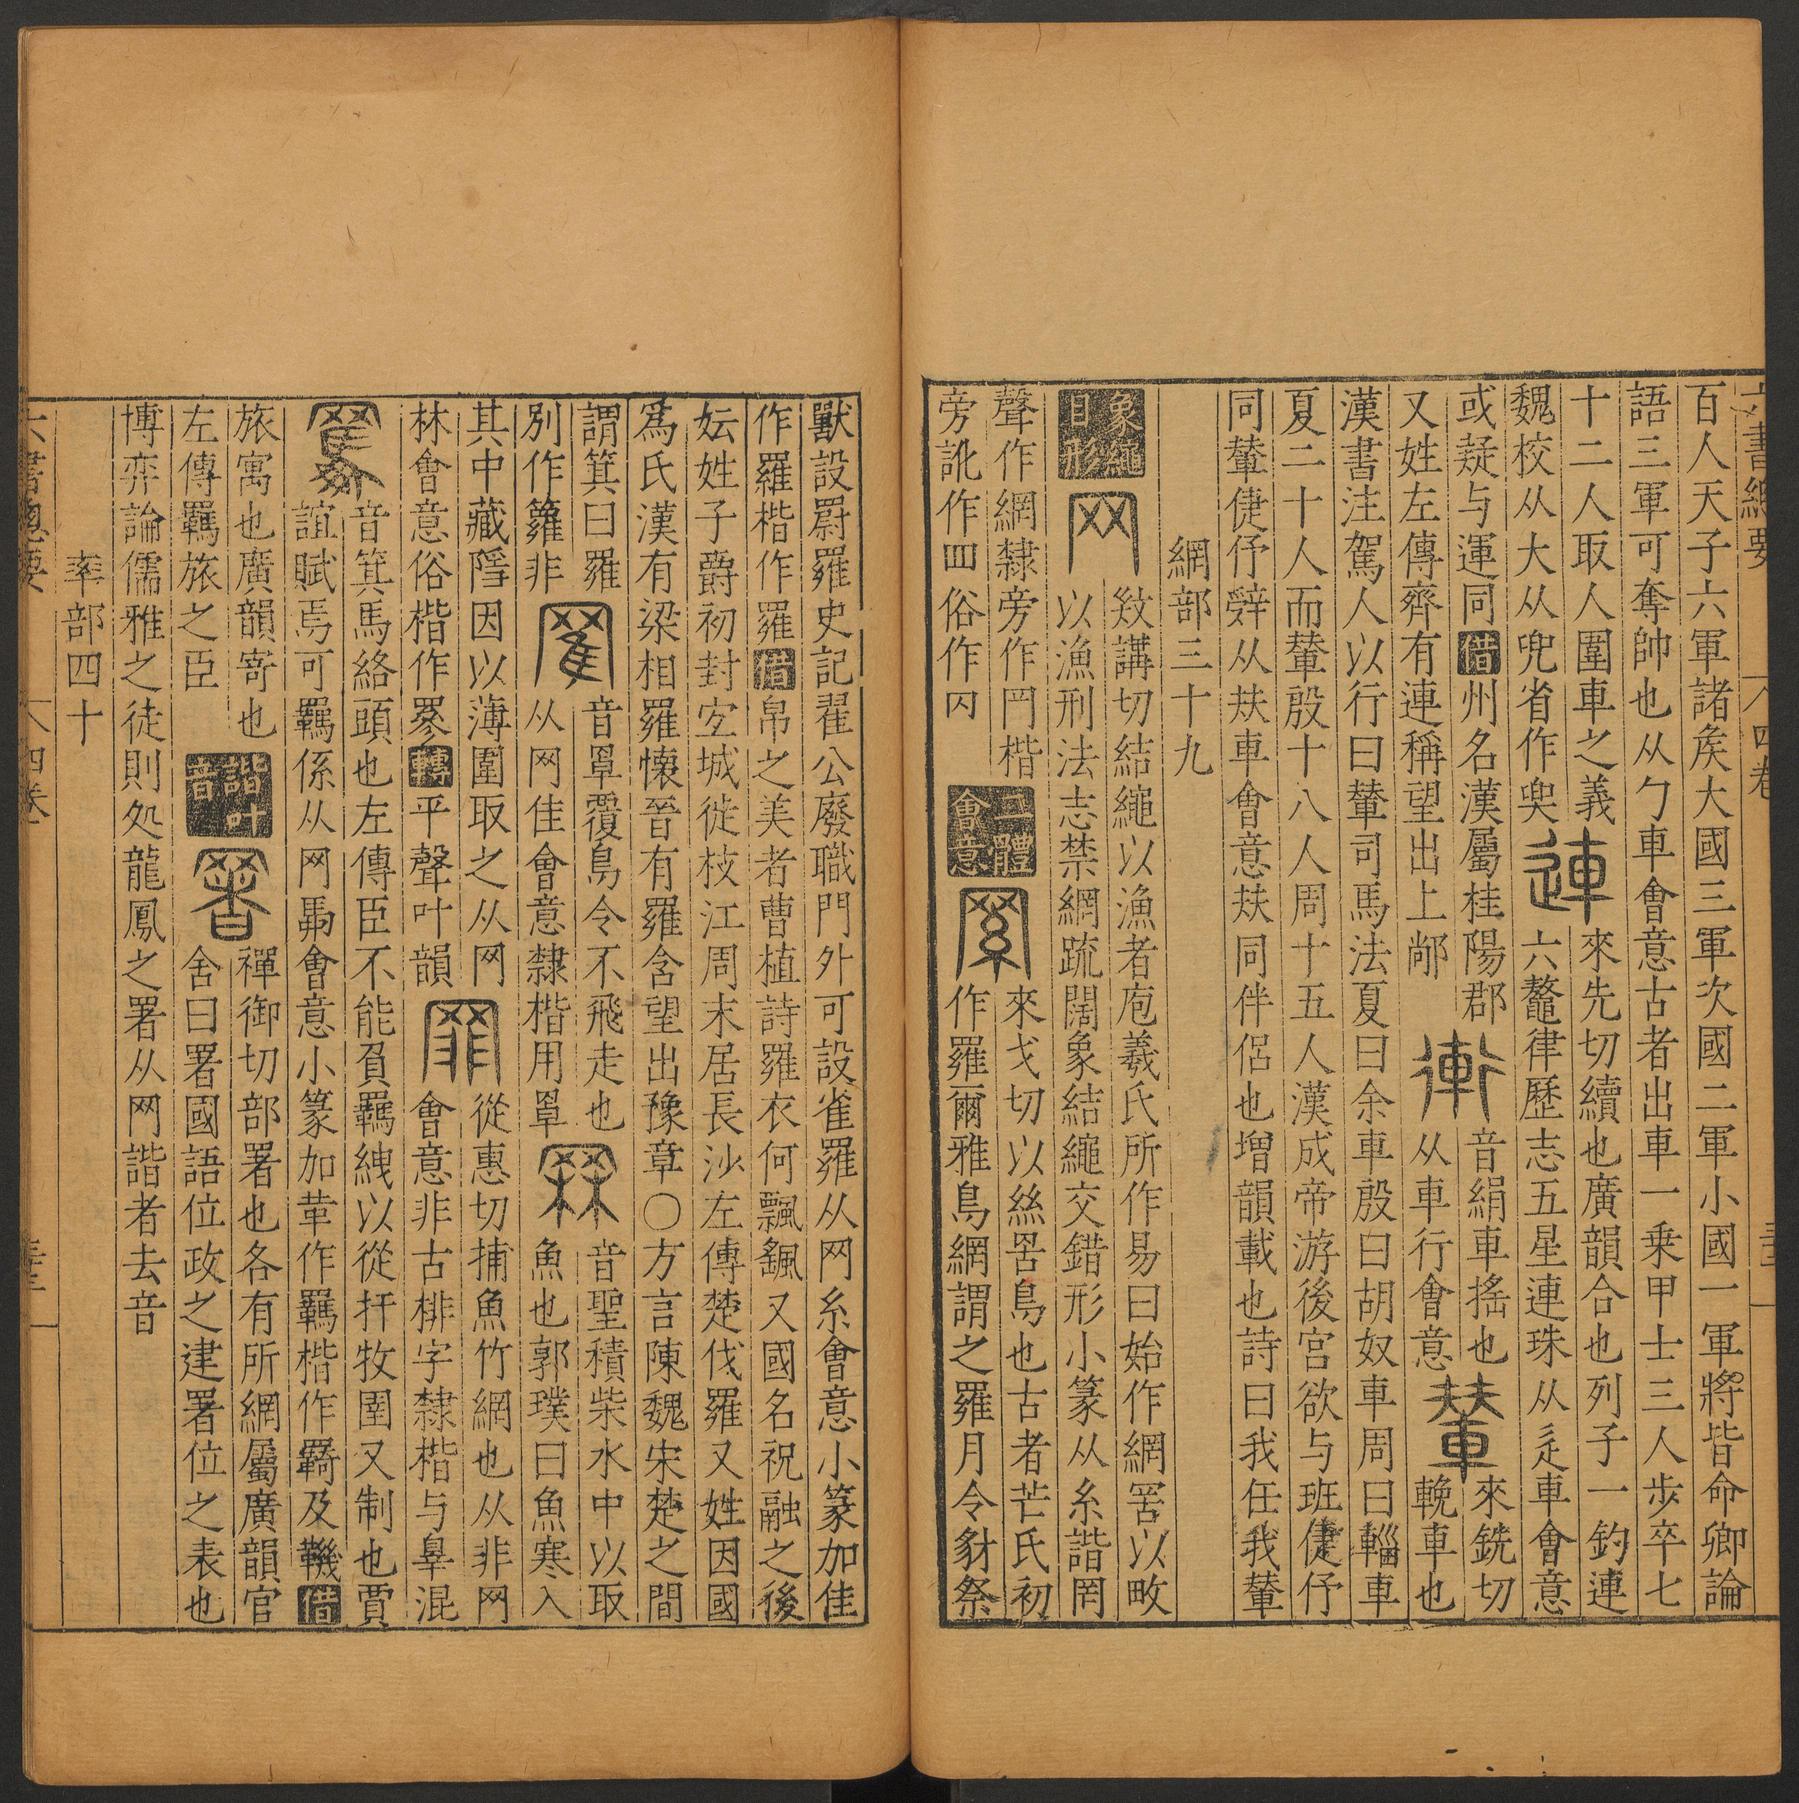 百人天子六軍諸矦大國三軍次國二軍小國一軍將皆命卿論
語三軍可奪帥也从勹車會意古者出車一乗甲士三人步卒七
十二人取人圍車之義 連 來先切續也廣韻合也列子一釣連
魏校从大从兜省作㬰 六鼇律歷志五星連珠从辵車會意
或疑与運同借州名漢屬桂陽郡 音絹車搖也 輦 來銑切
又姓左傳齊有連稱望出上鄗 从車行會意 輓車也
漢書注駕人以行曰輦司馬法夏曰余車殷曰胡奴車周曰輜車
夏二十人而輦殷十八人周十五人漢成帝游後宫欲与班倢伃
同輦倢伃辤从㚘車會意㚘同伴侶也增韻載也詩曰我任我輦
網部三十九
象繩目形 网 講切結繩以漁者庖羲氏所作易曰始作網罟以畋
以漁刑法志禁網疏闊象結繩交錯形小篆从糸諧罔
聲作網隸旁作罓楷 二體會意 來戈切以絲罟鳥也古者芒氏初
旁訛作罒俗作㓁 作羅爾雅鳥網謂之羅月令豺祭
獸設罻羅史記翟公廢職門外可設雀羅从网糸會意小篆加隹
作羅楷作羅借帛之美者曹植詩羅衣何飄颻又國名祝融之後
妘姓子爵初封宐城徙枝江周末居長沙左傳楚伐羅又姓因國
爲氏漢有梁相羅懷晉有羅含望出豫章〇方言陳魏宋楚之間
謂箕曰羅 音罩覆鳥令不飛走也 音聖積柴水中以取
別作籮非 从网隹會意隸楷用罩 魚也郭璞曰魚寒入
其中藏隱因以薄圍取之从网 從惠切捕魚竹網也从非网
林會意俗楷作罧轉平聲叶韻 會意非古排字隸楷与辠混
音箕馬絡頭也左傳臣不能負羈絏以從扞牧圉又制也賈
誼賦焉可羈係从网馽會意小篆加革作羈楷作羇及鞿借
旅寓也廣韻寄也 諧叶音 禪御切部署也各有所網屬廣韻官
左傳羈旅之臣 舍曰署國語位政之建署位之表也
博弈論儒雅之徒則処龍鳳之署从网諧者去音
率部四十
六書總要 四卷